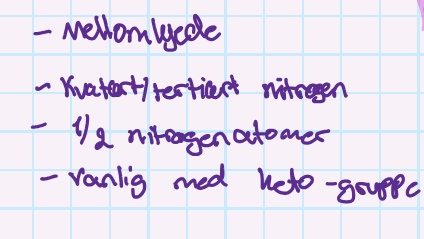 - Mellomkjede
- Kvatært/tertiært nitrogen
- 1/2 nitrogenatomer
- vanlig med keto-gruppe